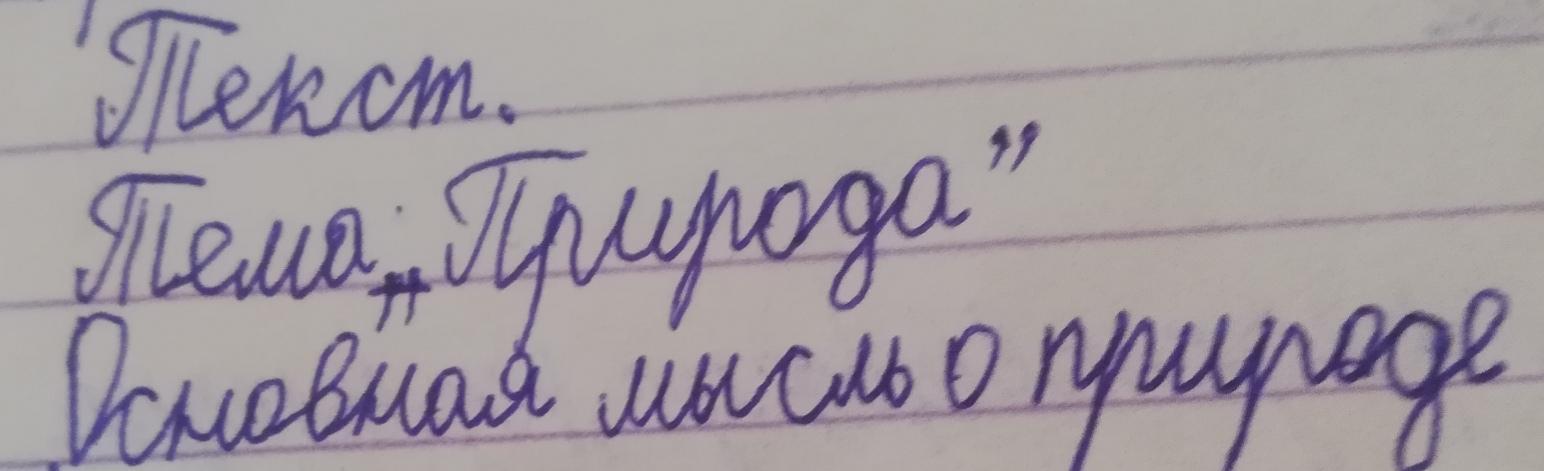 Текст.
Тема „Природа”
Основная мысль о природе